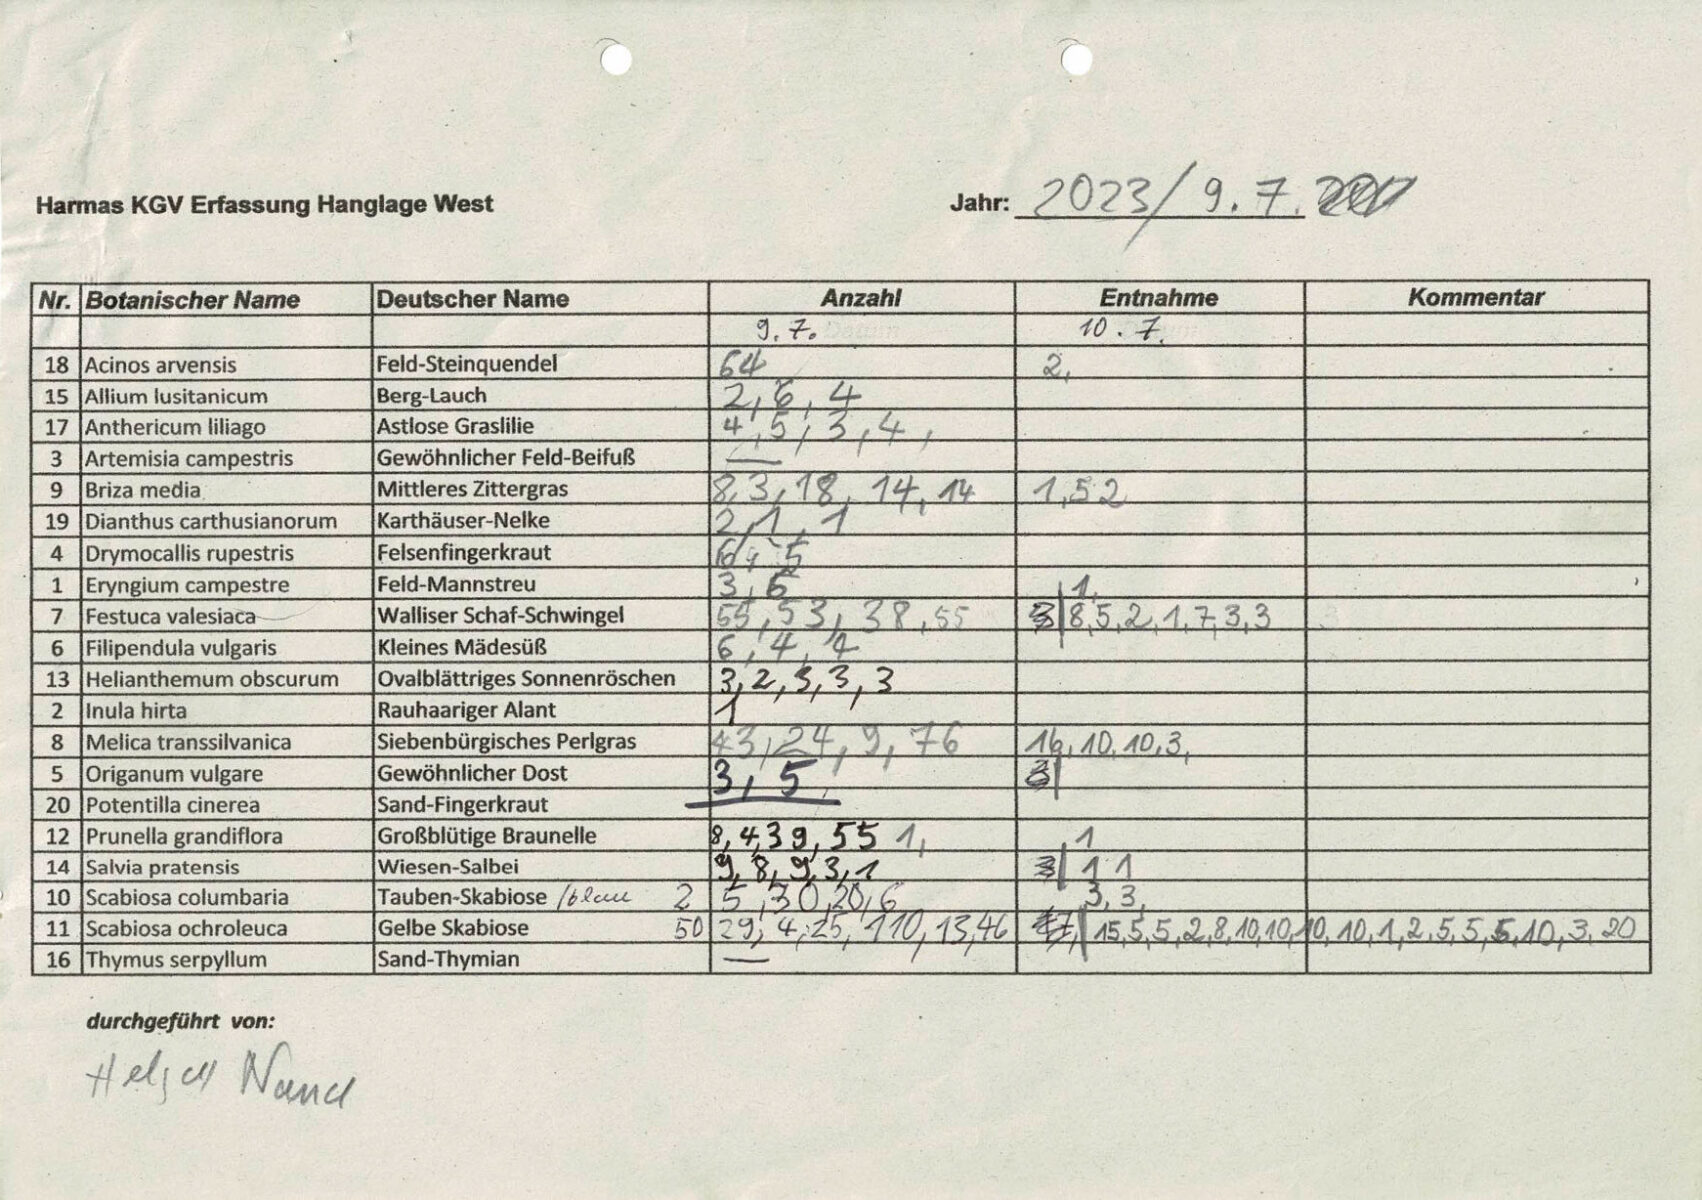 Harmas KGV Erfassung Hanglage West Jahr: 2023/9.7.
Nr. Botanischer Name Deutscher Name Anzahl Entnahme Kommentar
9.7. Datum 10.7.
18 Acinos arvensis Feld-Steinquendel 64 2,
15 Allium lusitanicum Berg-Lauch 2, 6, 4
17 Anthericum liliago Astlose Graslilie 4, 5, 3, 4,
3 Artemisia campestris Gewöhnlicher Feld-Beifuß —
9 Briza media Mittleres Zittergras 8, 3, 18, 14, 14 1, 5 2
19 Dianthus carthusianorum Karthäuser-Nelke 2, 1, 1
4 Drymocallis rupestris Felsenfingerkraut 5
1 Eryngium campestre Feld-Mannstreu 3, 6 1,
7 Festuca valesiaca Walliser Schaf-Schwingel 55, 53, 38, 55 8, 5, 2, 1, 7, 3, 3
6 Filipendula vulgaris Kleines Mädesüß 6, 4, 4
13 Helianthemum obscurum Ovalblättriges Sonnenröschen 3, 2, 3, 3, 3
2 Inula hirta Rauhaariger Alant 1
8 Melica transsilvanica Siebenbürgisches Perlgras 43, 24, 9, 76 16, 10, 10, 3,
5 Origanum vulgare Gewöhnlicher Dost 3, 5
20 Potentilla cinerea Sand-Fingerkraut —
12 Prunella grandiflora Großblütige Braunelle 8, 4, 39, 55 1, 1
14 Salvia pratensis Wiesen-Salbei 9, 8, 9, 3, 1 1 1
10 Scabiosa columbaria Tauben-Skabiose /blau 2 5, 30, 20, 6 3, 3,
11 Scabiosa ochroleuca Gelbe Skabiose 50 29, 4, 25, 110, 13, 46 15, 5, 5, 2, 8, 10, 10, 10, 10, 1, 2, 5, 5, 5, 10, 3, 20
16 Thymus serpyllum Sand-Thymian —
durchgeführt von: